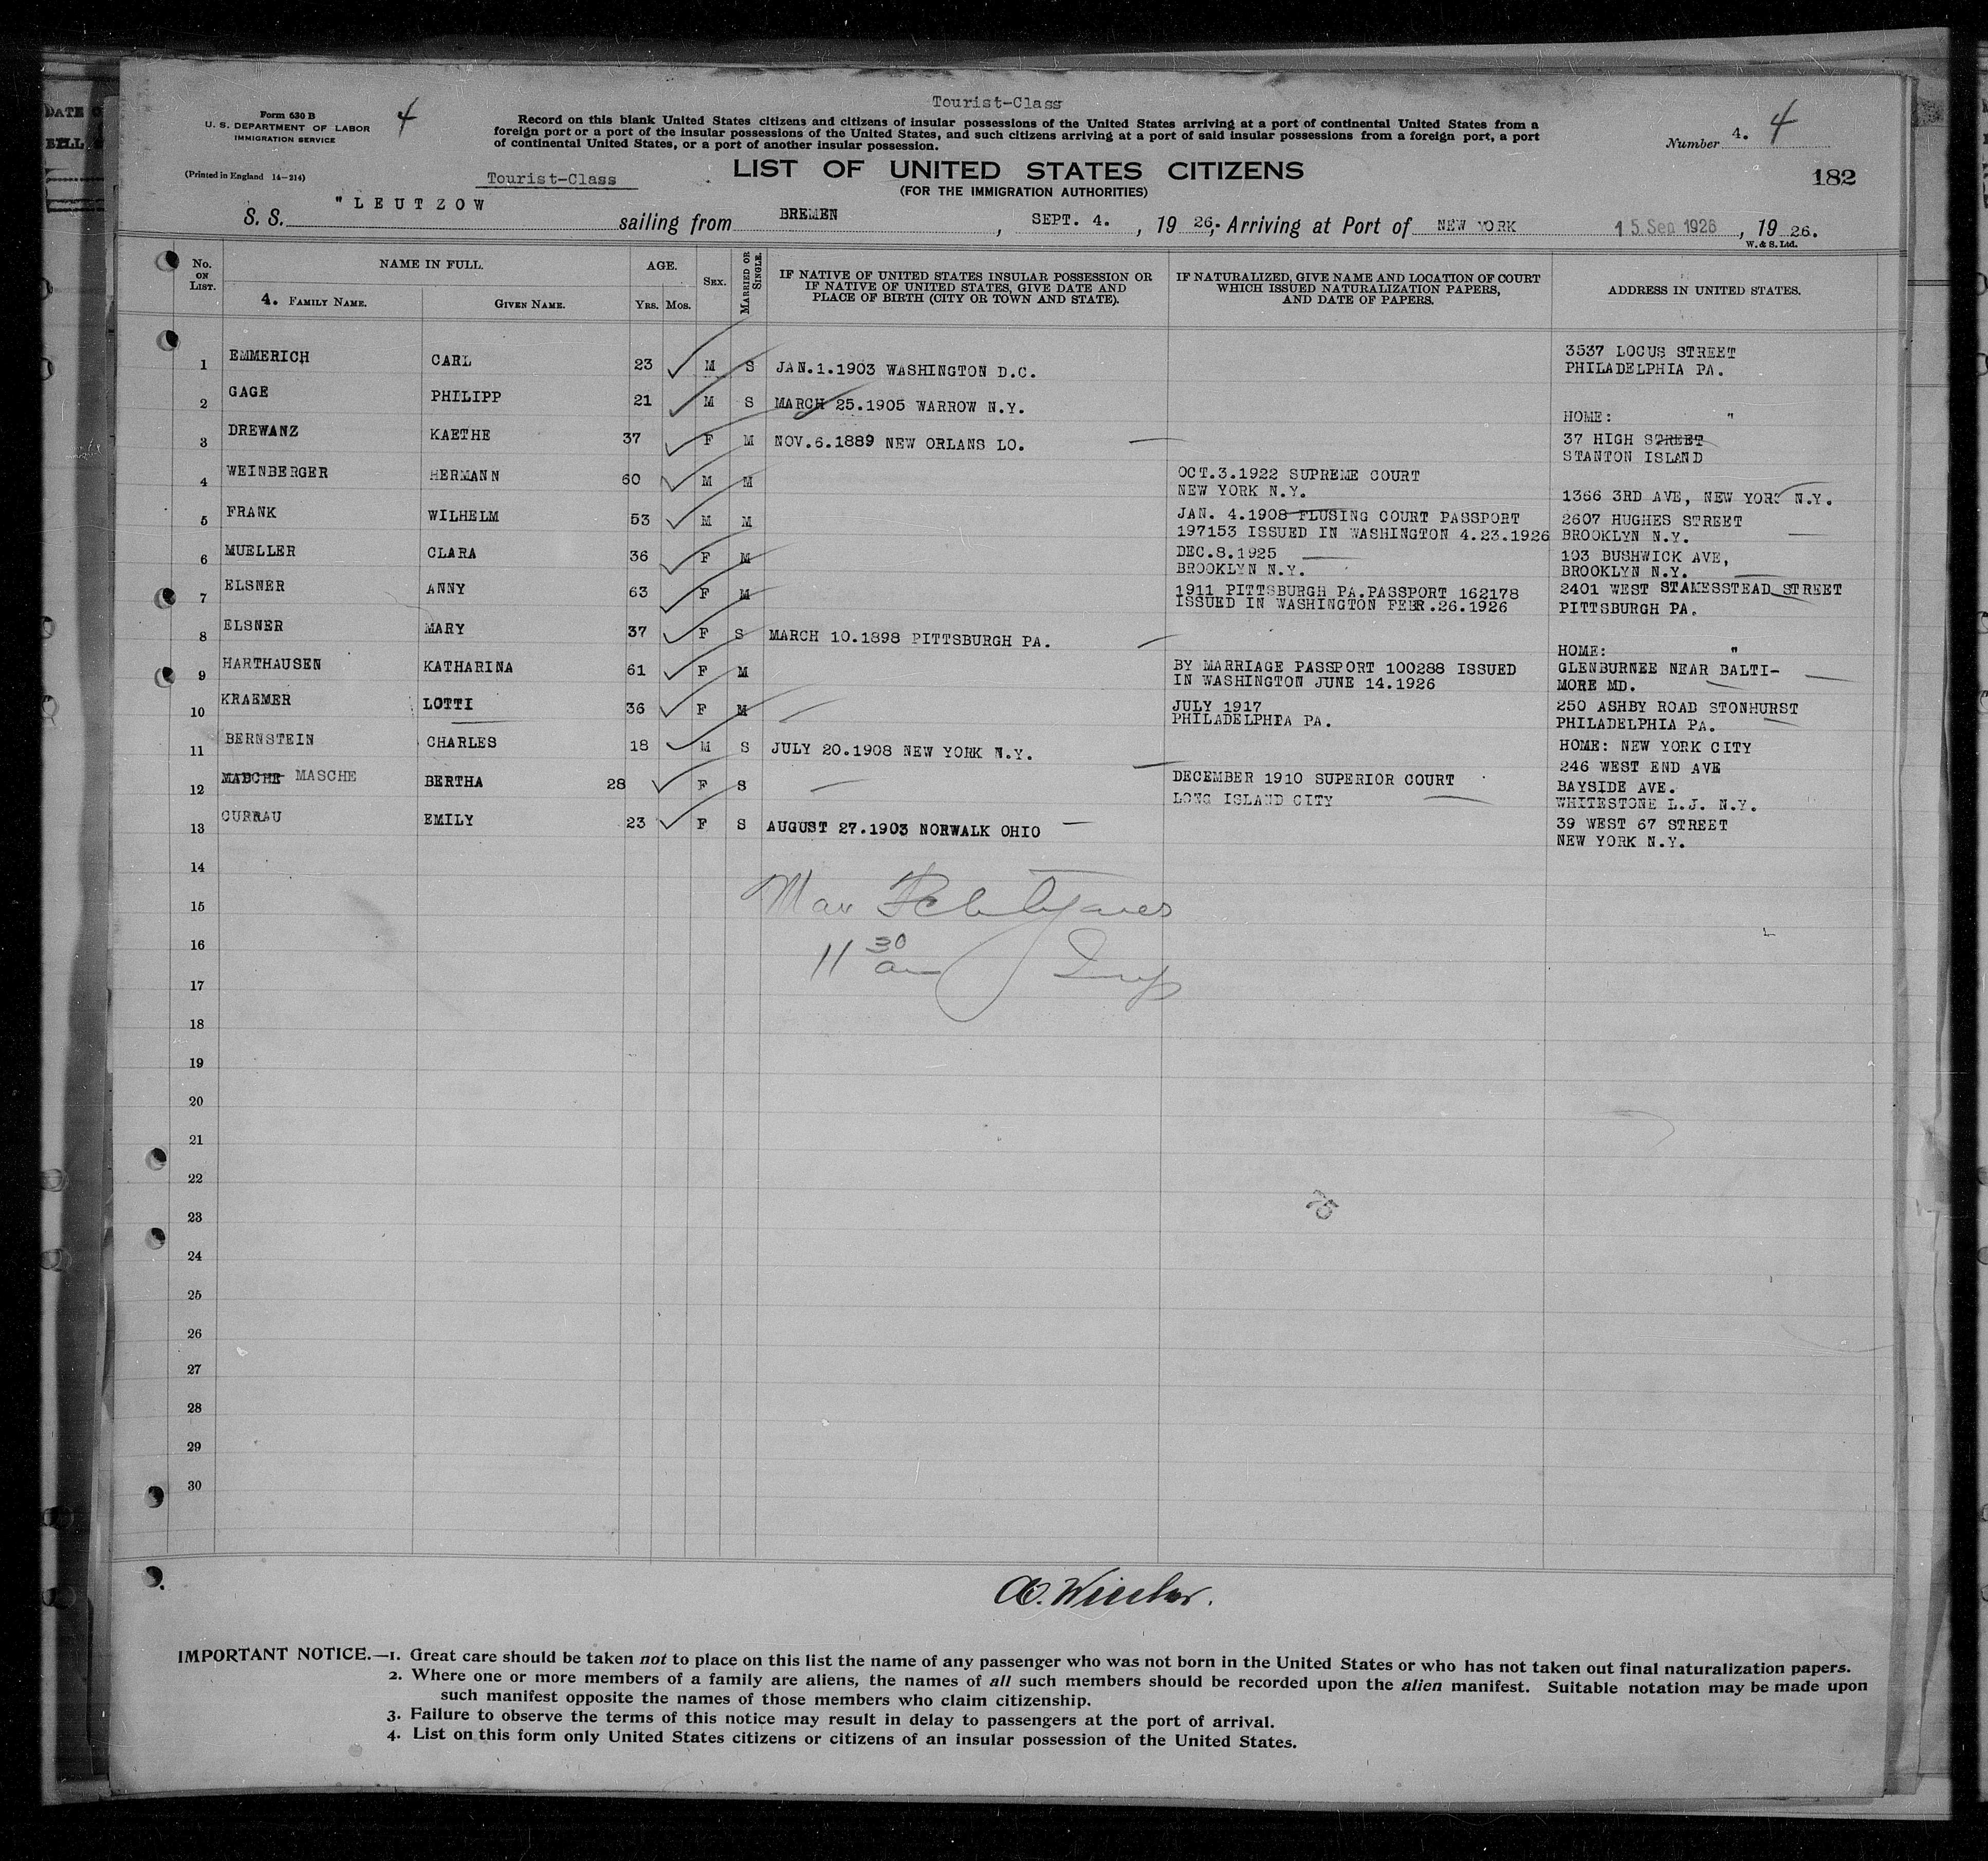 DATE
Form 630 B
U. S. DEPARTMENT OF LABOR
IMMIGRATION SERVICE
(Printed in England 14-214)
4
Tourist-Class
Record on this blank United States citizens and citizens of insular possessions of the United States arriving at a port of continental United States from a
foreign port or a port of the insular possessions of the United States, and such citizens arriving at a port of said insular possessions from a foreign port, a port
of continental United States, or a port of another insular possession.
Number 4. 4
LIST OF UNITED STATES CITIZENS
(FOR THE IMMIGRATION AUTHORITIES)
Tourist-Class
182
S. S. "LEUTZOW sailing from BREMEN, SEPT. 4., 19 26; Arriving at Port of NEW YORK 15 Sep 1926, 19 26.
W. & S. Ltd.
No. ON LIST. NAME IN FULL. AGE. SEX. MARRIED OR SINGLE. IF NATIVE OF UNITED STATES INSULAR POSSESSION OR IF NATIVE OF UNITED STATES, GIVE DATE AND PLACE OF BIRTH (CITY OR TOWN AND STATE). IF NATURALIZED, GIVE NAME AND LOCATION OF COURT WHICH ISSUED NATURALIZATION PAPERS, AND DATE OF PAPERS. ADDRESS IN UNITED STATES.
4. FAMILY NAME. GIVEN NAME. YRS. MOS.
1 EMMERICH CARL 23 M S JAN.1.1903 WASHINGTON D.C. 3537 LOCUS STREET
PHILADELPHIA PA.
2 GAGE PHILIPP 21 M S MARCH 25.1905 WARROW N.Y. HOME: "
3 DREWANZ KAETHE 37 F M NOV.6.1889 NEW ORLANS LO. 37 HIGH STREET
STANTON ISLAND
4 WEINBERGER HERMANN 60 M M OCT.3.1922 SUPREME COURT
NEW YORK N.Y. 1366 3RD AVE, NEW YORK N.Y.
5 FRANK WILHELM 53 M M JAN. 4.1908 FLUSING COURT PASSPORT 2607 HUGHES STREET
197153 ISSUED IN WASHINGTON 4.23.1926 BROOKLYN N.Y.
6 MUELLER CLARA 36 F M DEC.8.1925 193 BUSHWICK AVE,
BROOKLYN N.Y. BROOKLYN N.Y.
7 ELSNER ANNY 63 F M 1911 PITTSBURGH PA.PASSPORT 162178 2401 WEST STAMESSTEAD STREET
ISSUED IN WASHINGTON FEBR.26.1926 PITTSBURGH PA.
8 ELSNER MARY 37 F S MARCH 10.1898 PITTSBURGH PA. HOME: "
9 HARTHAUSEN KATHARINA 61 F M BY MARRIAGE PASSPORT 100288 ISSUED GLENBURNEE NEAR BALTI-
IN WASHINGTON JUNE 14.1926 MORE MD.
10 KRAEMER LOTTI 36 F M JULY 1917 250 ASHBY ROAD STONHURST
PHILADELPHIA PA. PHILADELPHIA PA.
11 BERNSTEIN CHARLES 18 M S JULY 20.1908 NEW YORK N.Y. HOME: NEW YORK CITY
246 WEST END AVE
12 MASCHE BERTHA 28 F S DECEMBER 1910 SUPERIOR COURT BAYSIDE AVE.
LONG ISLAND CITY WHITESTONE L.J. N.Y.
13 CURRAU EMILY 23 F S AUGUST 27.1903 NORWALK OHIO 39 WEST 67 STREET
NEW YORK N.Y.
14
15
Max
16
11 30 am Insp
17
18
19
20
21
22
23
24
25
26
27
28
29
30
IMPORTANT NOTICE.—1. Great care should be taken not to place on this list the name of any passenger who was not born in the United States or who has not taken out final naturalization papers.
2. Where one or more members of a family are aliens, the names of all such members should be recorded upon the alien manifest. Suitable notation may be made upon
such manifest opposite the names of those members who claim citizenship.
3. Failure to observe the terms of this notice may result in delay to passengers at the port of arrival.
4. List on this form only United States citizens or citizens of an insular possession of the United States.